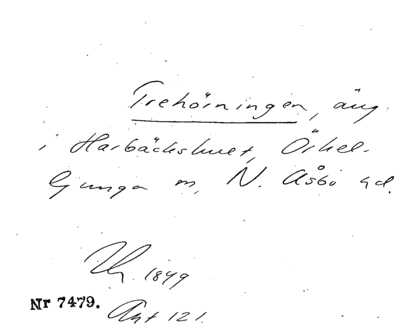 Trehörningen, äng
i Harbäckshult, Örkel-
ljunga sn, N. Åsbo hd.
1849
Nr 7479. Akt 121.